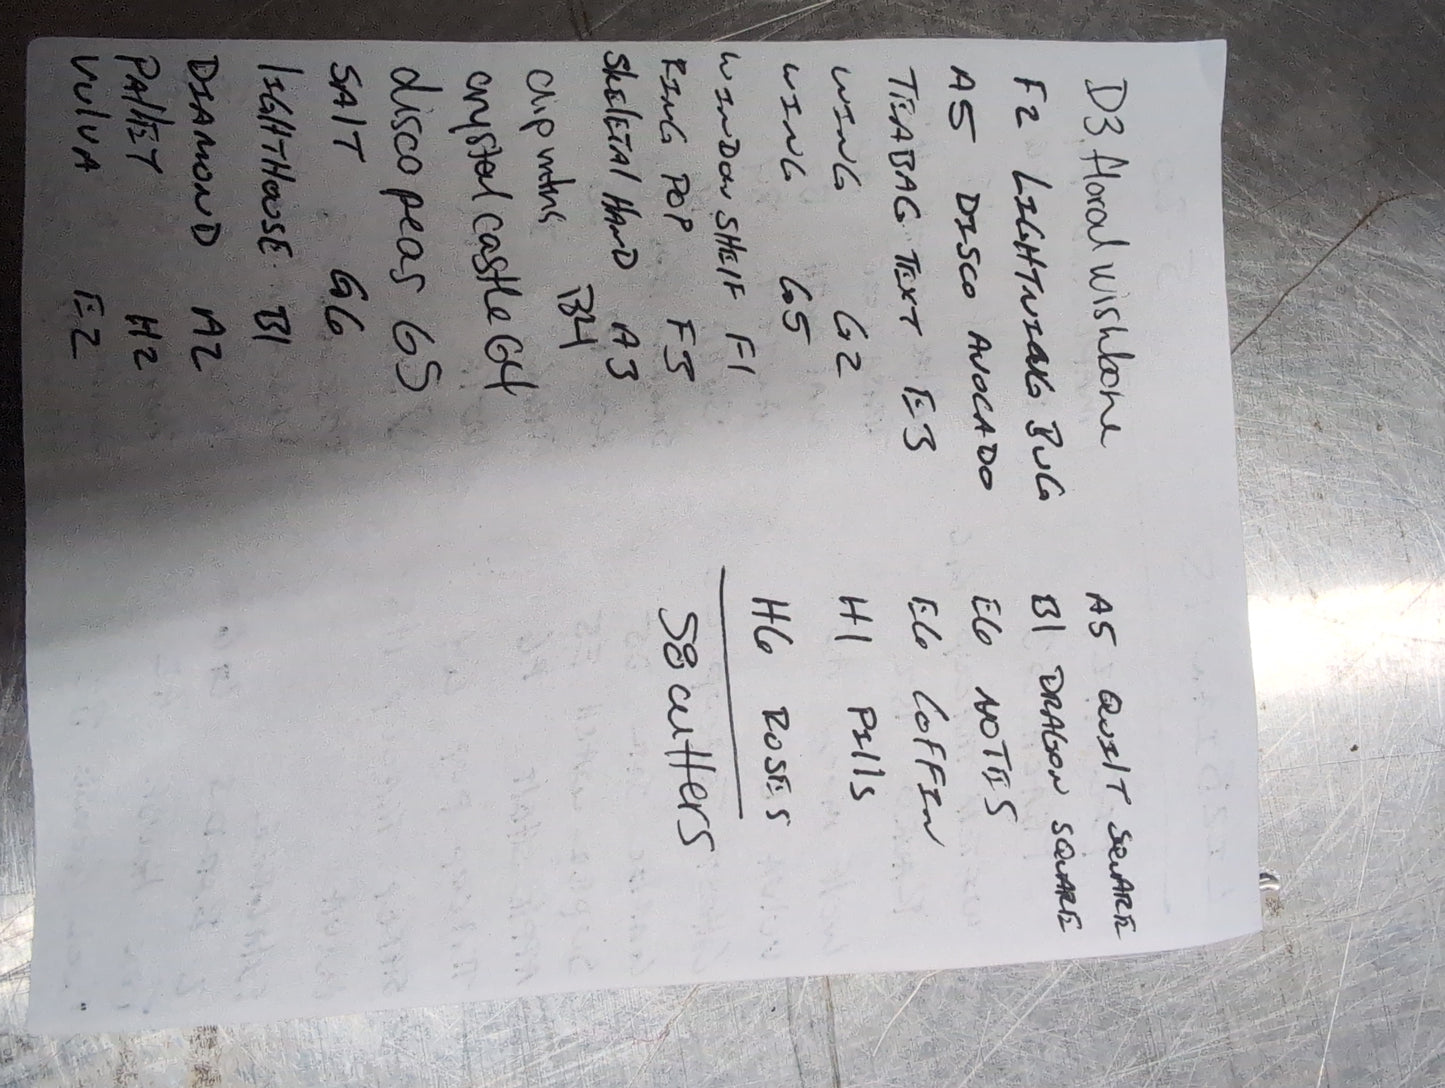 D3 floral wishbone
F2 LIGHTNING BUG
A5 DISCO AVOCADO
TEABAG TEXT E3
WING G2
WING G5
WINDOW SHELF F1
RING POP F5
SKELETAL HAND A3
clip mtns B4
crystal castle G4
disco peas G5
SALT G6
LIGHTHOUSE B1
DIAMOND A2
PALLET H2
VULVA E2
A5 QUILT SQUARE
B1 DRAGON SQUARE
E6 NOTES
E6 COFFIN
H1 PILLS
H6 ROSES
58 cutters